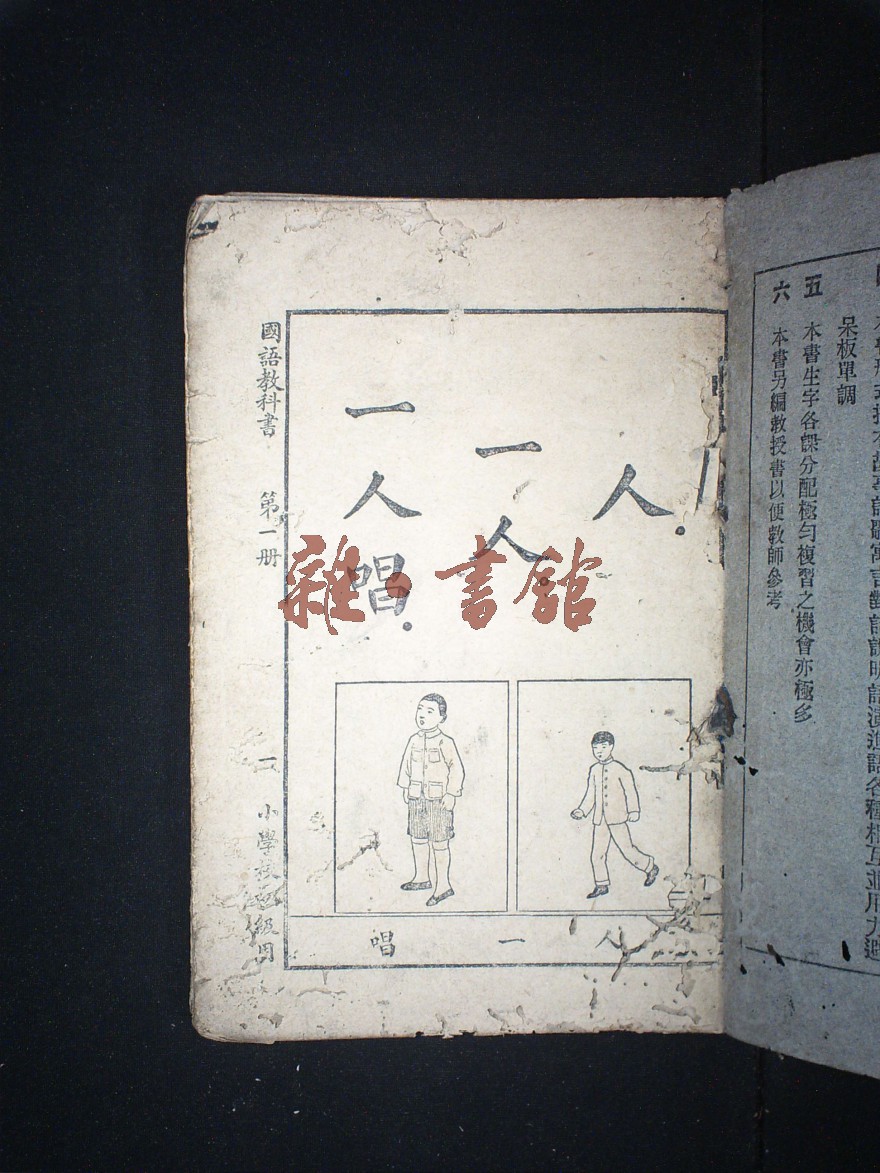 呆板單調
五 本書生字各課分配極勻複習之機會亦極多
六 本書另編敎授書以便敎師參考
人。
一人。
一人唱。
人 一 唱
國語敎科書 第一册 一 小學校初級用
雜·書館